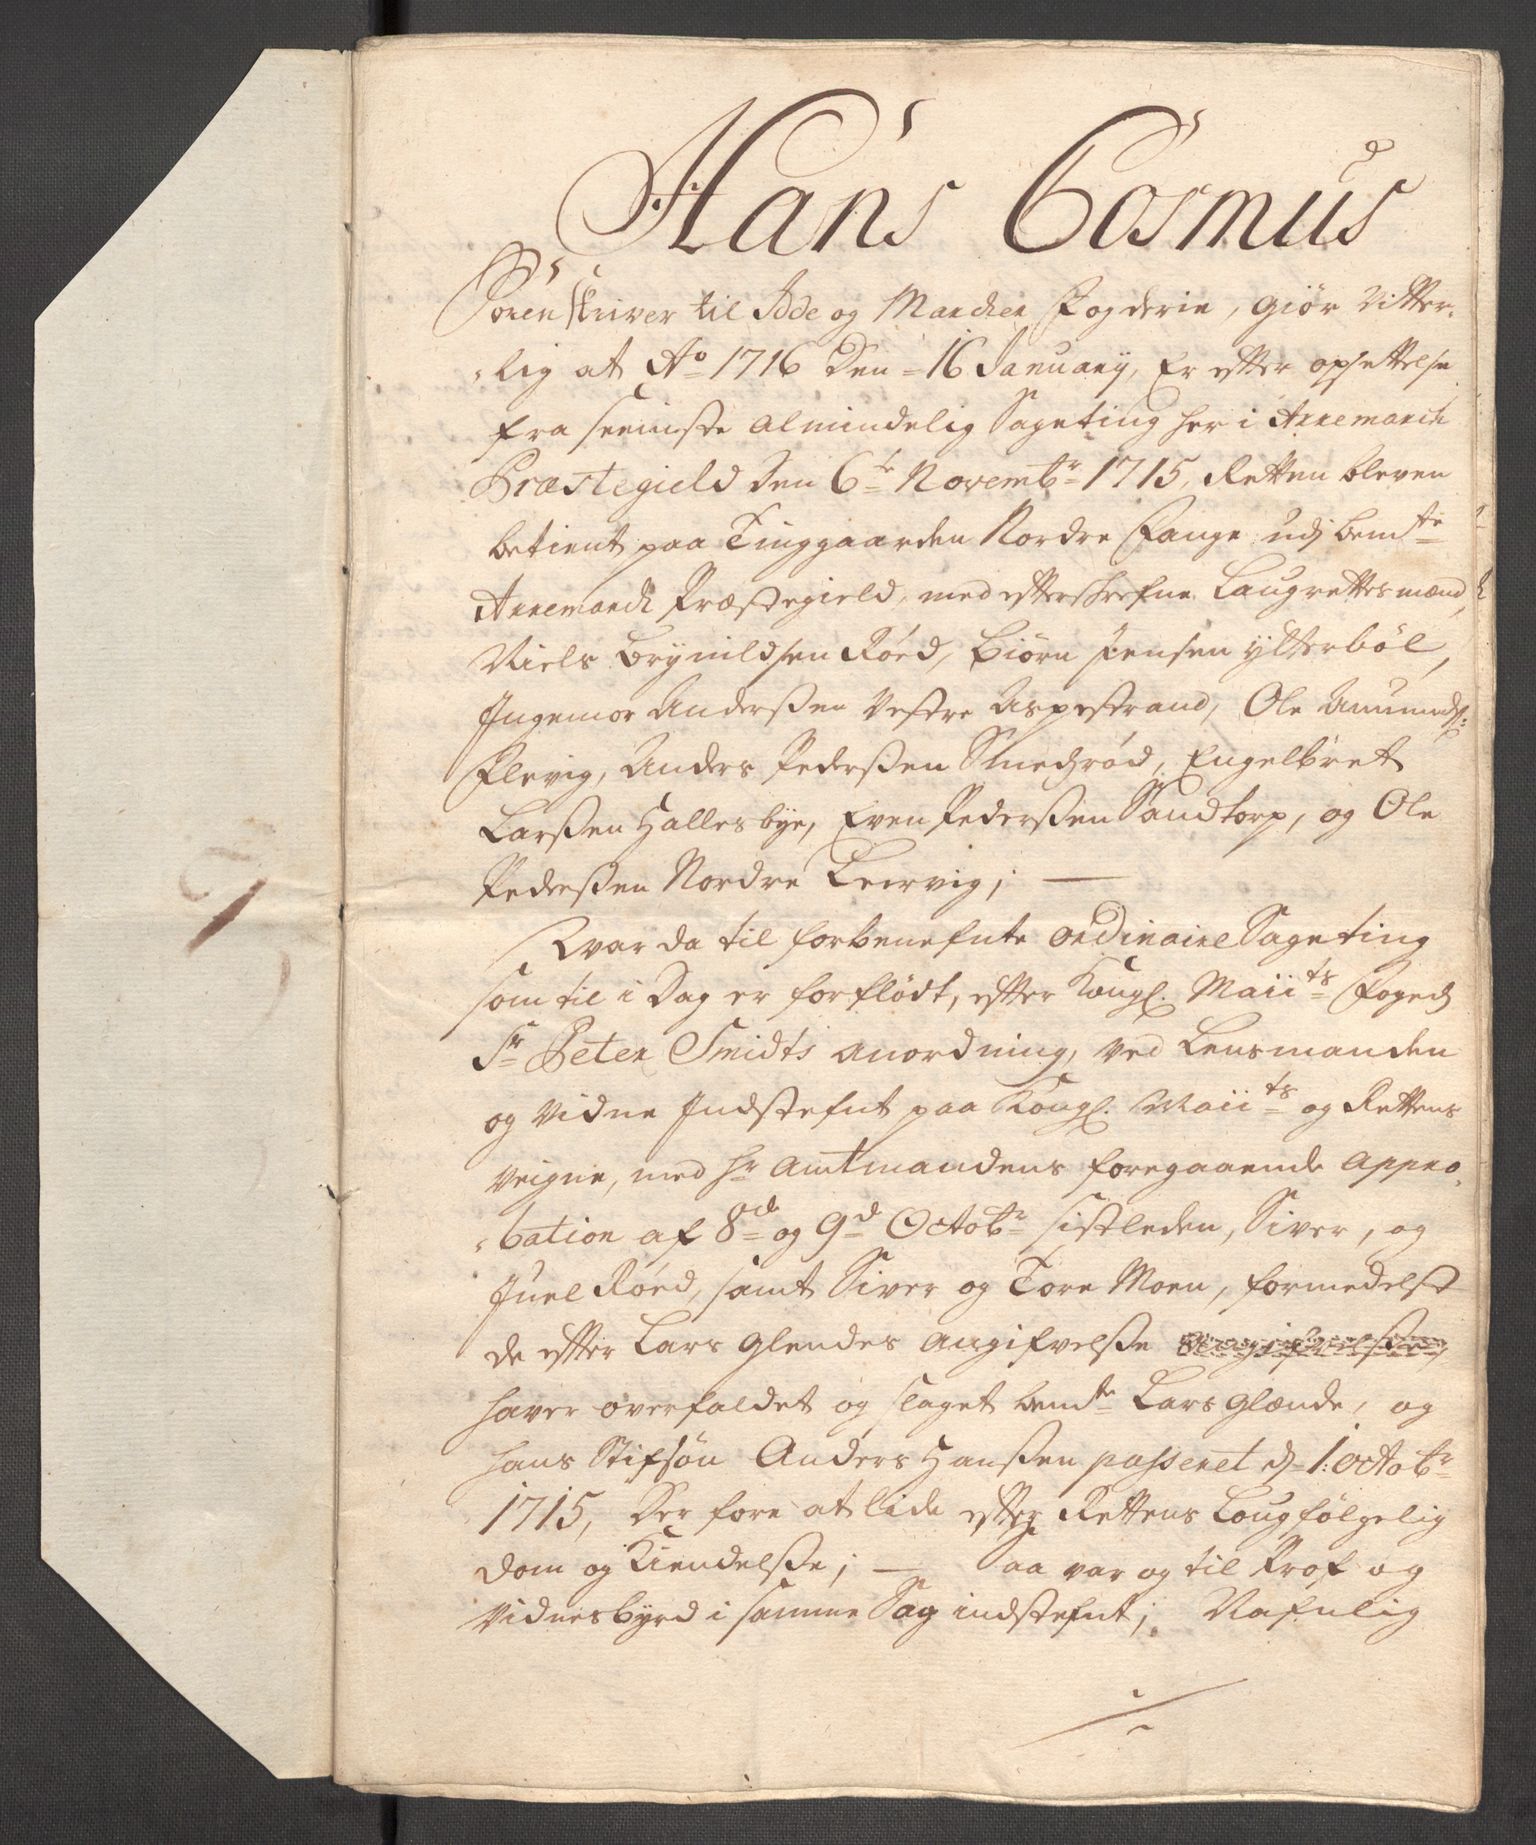 Hans Cosmus
Sorenskriver til Idde og Marcher Fogderie, giör vitter-
lig at Ao 1716 Den 16 January, Er efter opsettelse
fra seeniste almindelig Sageting her i Arremarch
Præstegield Den 6te Novembr 1715, Retten bleven
betient paa Tinggaarden Nordre Fange udj bemte
Arremarch Præstegield, med efterskrefne Laugrettesmænd,
Niels Brynildsen Röed, Biörn Jensen ytterböl,
Ingemor Anderssen Vestre Aspestrand, Ole Amunds:
Elevig, Anders Pederssen Smedzröd, Engelbret
Larssen Hallesbye, Even Pederssen Sandtorp, og Ole
Pederssen Nordre Leervig; —
Hvar da til forbenefnte ordinaire Sageting
som til i Dag er forflödt, efter Kongl. Maiits Foged
Sr Peter Smidts anordning, ved Lensmanden
og vidne Indstefnt paa Kongl. Maiits og Rettens
veigne, med Hr Amtmandens foregaaende appro-
bation af 8de og 9d Octobr sistleden, Siver, og
Juel Röed, samt Siver og Tore Moen, formedelst
de efter Lars Glendes angifvelsse
haver overfaldet og slaget bemte Lars Glænde, og
hans Stifsön Anders Hanssen passeret d 1. Octobr
1715, Der fore at lide efter Rettens Lougfölgelig
Dom og Kiendelsse; — Saa var og til Prof og
vidnesbyrd i samme Sag indstefnt; Nafnlig